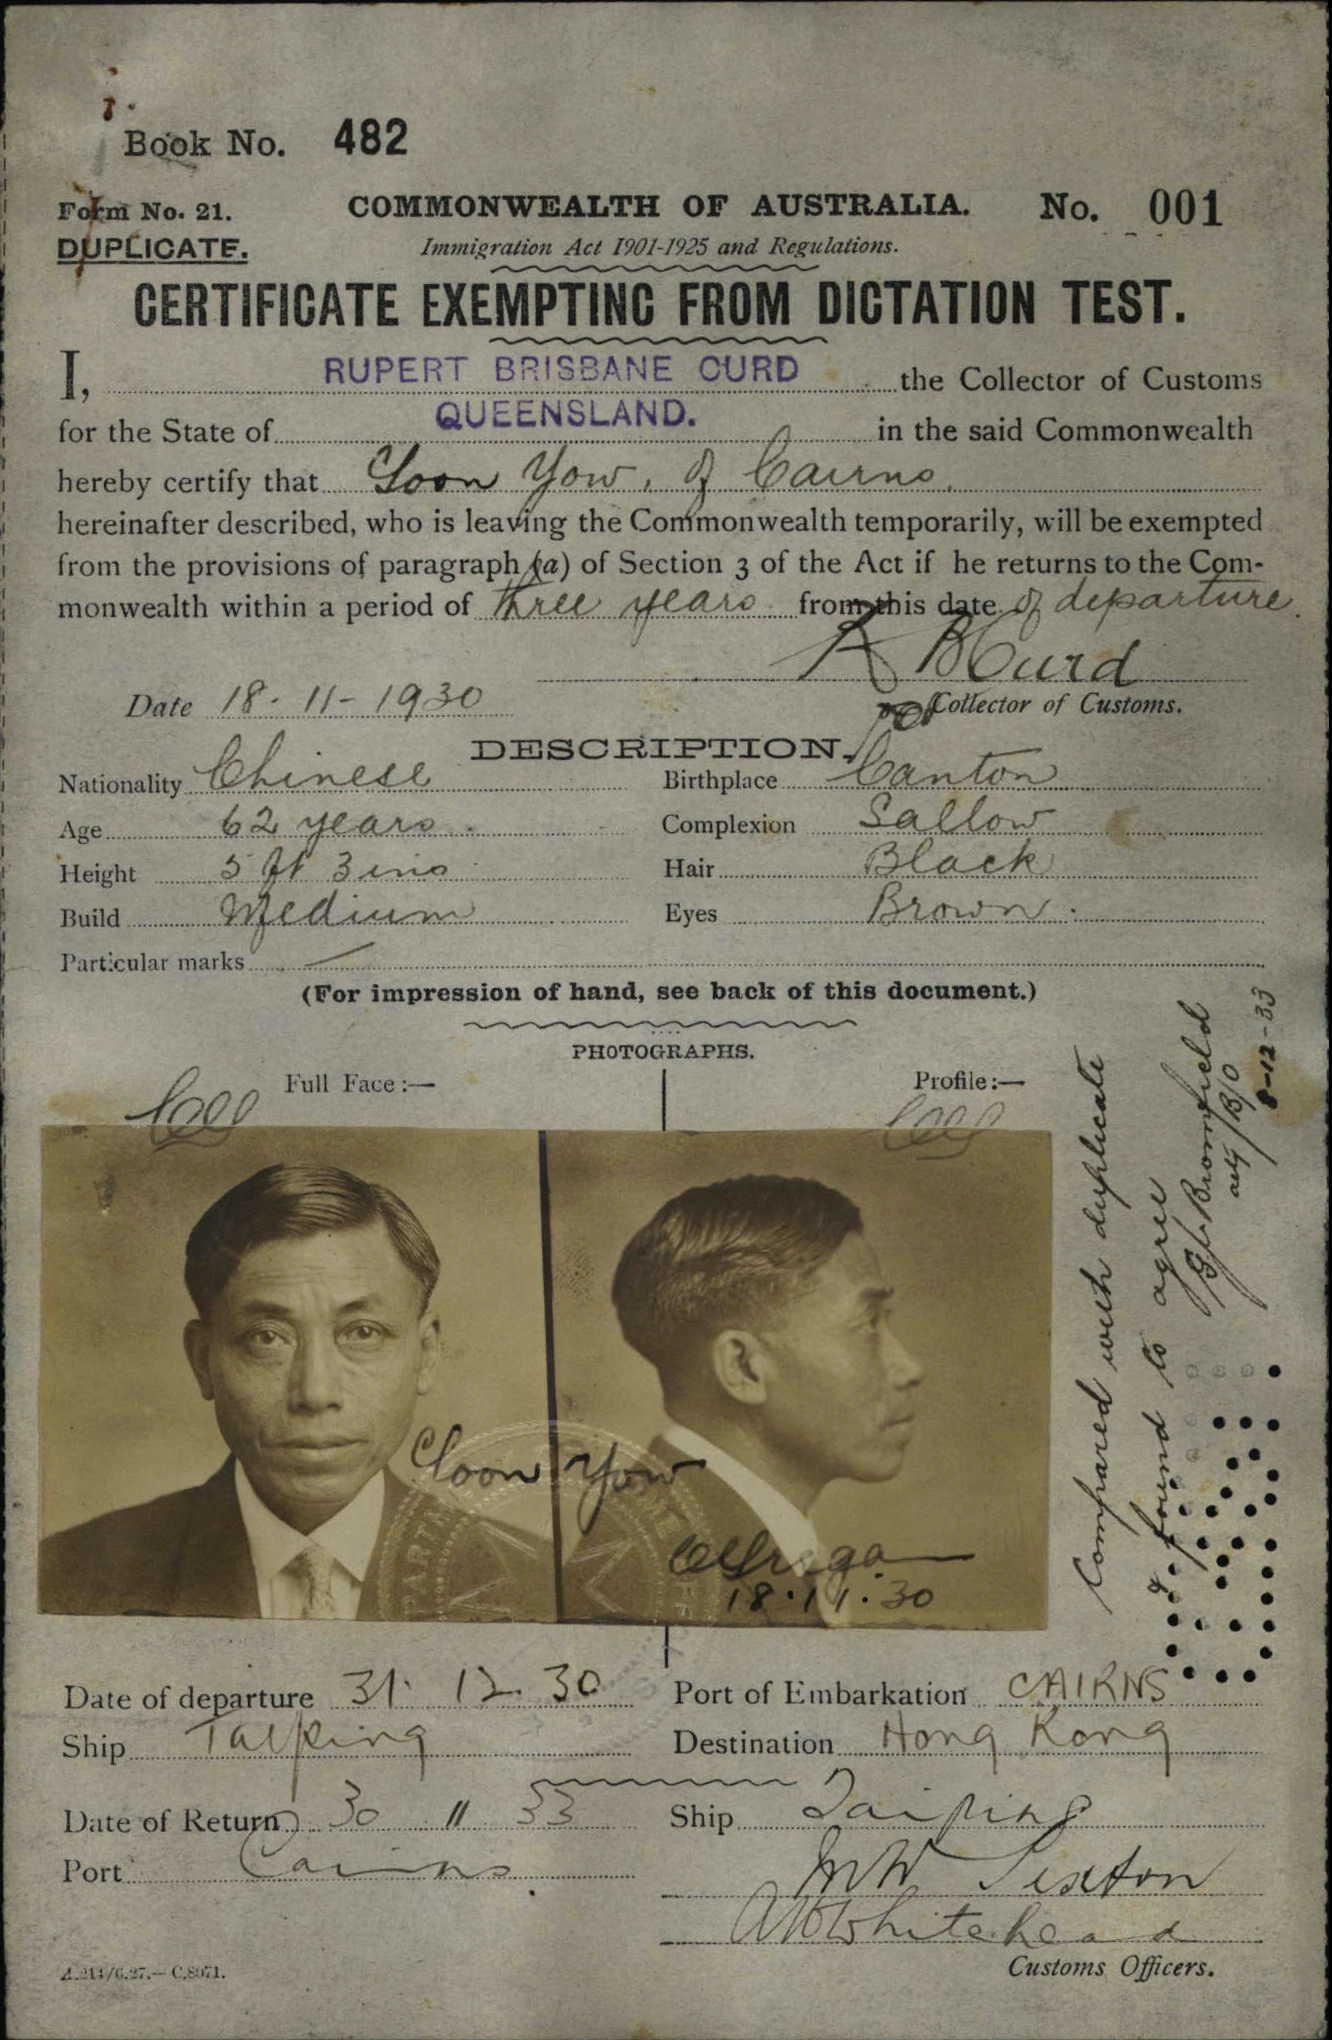 Book No. 482
Form No. 21.
DUPLICATE.
COMMONWEALTH OF AUSTRALIA. No. 001
Immigration Act 1901-1925 and Regulations.
CERTIFICATE EXEMPTING FROM DICTATION TEST.
I, RUPERT BRISBANE CURD the Collector of Customs
for the State of QUEENSLAND. in the said Commonwealth
hereby certify that Loon Yow, of Cairns.
hereinafter described, who is leaving the Commonwealth temporarily, will be exempted
from the provisions of paragraph (a) of Section 3 of the Act if he returns to the Com-
monwealth within a period of three years from this date of departure.
R B Curd
Date 18-11-1930
Collector of Customs.
DESCRIPTION.
Nationality Chinese Birthplace Canton
Age 62 years. Complexion Sallow
Height 5 ft 3 ins Hair Black
Build Medium Eyes Brown.
Particular marks
(For impression of hand, see back of this document.)
PHOTOGRAPHS.
Full Face:— Profile:—
Loon Yow
18.11.30
Compared with duplicate
& found to agree
Bromfield
8-12-33
Date of departure 31. 12. 30 Port of Embarkation CAIRNS
Ship Taiping Destination Hong Kong
Date of Return 30 11 33 Ship Taiping
Port Cairns
Sexton
Whitehead
Customs Officers.
C.8071.